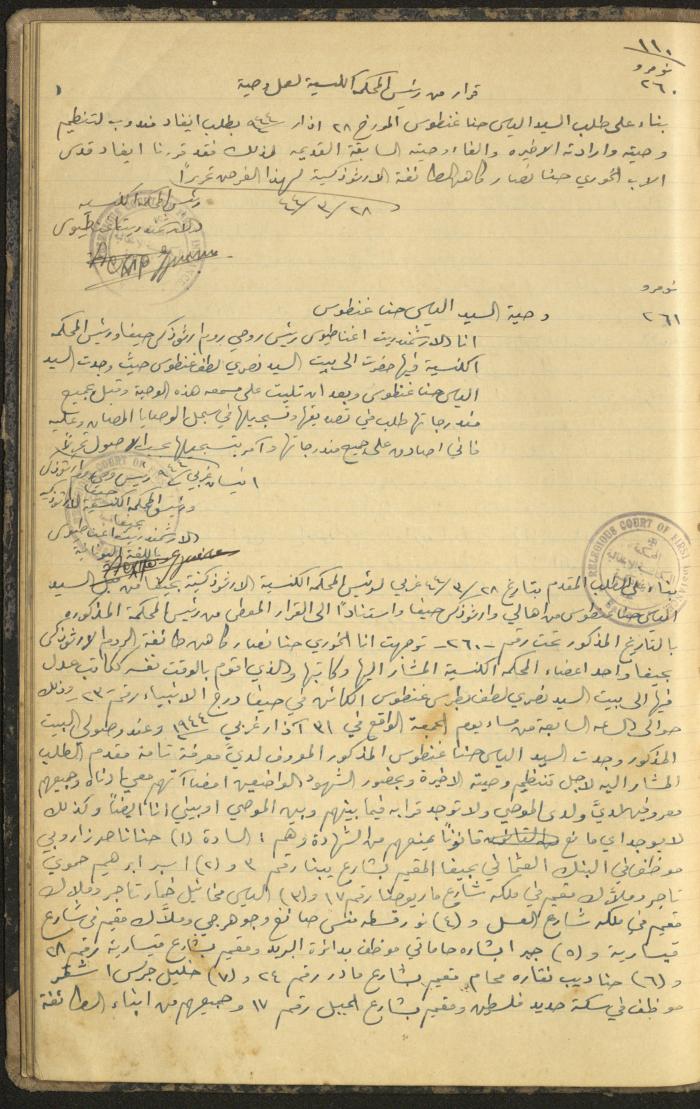 ١١٠
نومرو
٢٦٠
قرار من رئيس المحكمة الكنسية لعمل وصية
بناء على طلب السيد الياس حنا غنطوس المورخ ٢٨ اذار ٩٤٤ بطلب ايفاد مندوب لتنظيم
وصيته وارادته الاخيره والغاء وصيته السابقة القديمه لذلك فقد قررنا ايفاد قدس
الاب الخوري حنا نصار كاهن الطائفة الارثوذكسية لهذا الغرض تحريراً
في ٢٨/٣/٤٤
رئيس المحكمة الكنسية
الارشمندريت اغناطيوس
نومرو
٢٦١
وصية السيد الياس حنا غنطوس
انا الارشمندريت اغناطيوس رئيس روحي روم ارثوذكس حيفا ورئيس المحكمة
الكنسية فيها حضرت الى بيت السيد نصري لطف غنطوس حيث وجدت السيد
الياس حنا غنطوس وبعد ان تليت على مسمعه هذه الوصية وقبل بجميع
مندرجاتها طلب مني تصديقها وتسجيلها في سجل الوصايا المصان وعليه
فاني اصادق على جميع مندرجاتها وآمر بتسجيلها حسب الاصول تحريراً في
١ نيسان غربي ٩٤٤ رئيس روحي روم ارثوذكس
حيفا
ورئيس المحكمة الكنسية الارثوذكسية
بحيفا
الارشمندريت اغناطيوس
باللغة اليونانية
RELIGIOUS COURT OF FIRST INSTANCE
بناء على الطلب المقدم بتاريخ ٢٨/٣/٤٤ غربي لرئيس المحكمة الكنسية الارثوذكسية بحيفا من قبل السيد
الياس حنا غنطوس من اهالي وارثوذكس حيفا واستناداً الى القرار المعطى من رئيس المحكمة المذكوره
بالتاريخ المذكور تحت رقم -٢٦٠- توجهت انا الخوري حنا نصار كاهن طائفة الروم الارثوذكس
بحيفا واحد اعضاء المحكمة الكنسية المشار اليها وكاتبها والذي اقوم بالوقت نفسه ككاتب عدل
فيها الى بيت السيد نصري لطف بطرس غنطوس الكائن في حيفا درج الانبياء رقم ٢٣ وذلك
حوالي الساعة السابعة من مساء يوم الجمعة الواقع في ٣١ آذار غربي ١٩٤٤ وعند وصولي البيت
المذكور وجدت السيد الياس حنا غنطوس المذكور المعروف لديّ معرفة تامة مقدم الطلب
المشار اليه لاجل تنظيم وصيته الاخيرة وبحضور الشهود الواضعين امضاآتهم معي ادناه وجميعهم
معروفين لديّ ولدى الموصي ولا توجد قرابه فيما بينهم وبين الموصي او بيني انا ايضاً وكذلك
لا يوجد اي مانع قانوناً يمنعهم من الشهادة وهم : السادة (١) حنا ناصر زاروبي
موظف في البنك العثماني بحيفا المقيم بشارع يينا رقم ٣ و (٢) اسبر ابرهيم حموي
تاجر وملاّك مقيم في ملكه شارع مار يوحنا رقم ١٧ و(٣) الياس مخائيل خمار تاجر وملاك
مقيم في ملكه شارع العسل و (٤) نور قسطه منسى صائغ وجوهرجي وملاّك مقيم في شارع
قيسارية و (٥) جبر ابشاره حاماتي موظف بدائرة البريد ومقيم بشارع قيسارية رقم ٢٨
و (٦) حنا ديب نقاره محام مقيم بشارع مادر رقم ٢٤ و (٧) خليل جرجس اشقر
موظف في سكة حديد فلسطين ومقيم بشارع الجبل رقم ١٧ وجميعهم من ابناء الطائفة